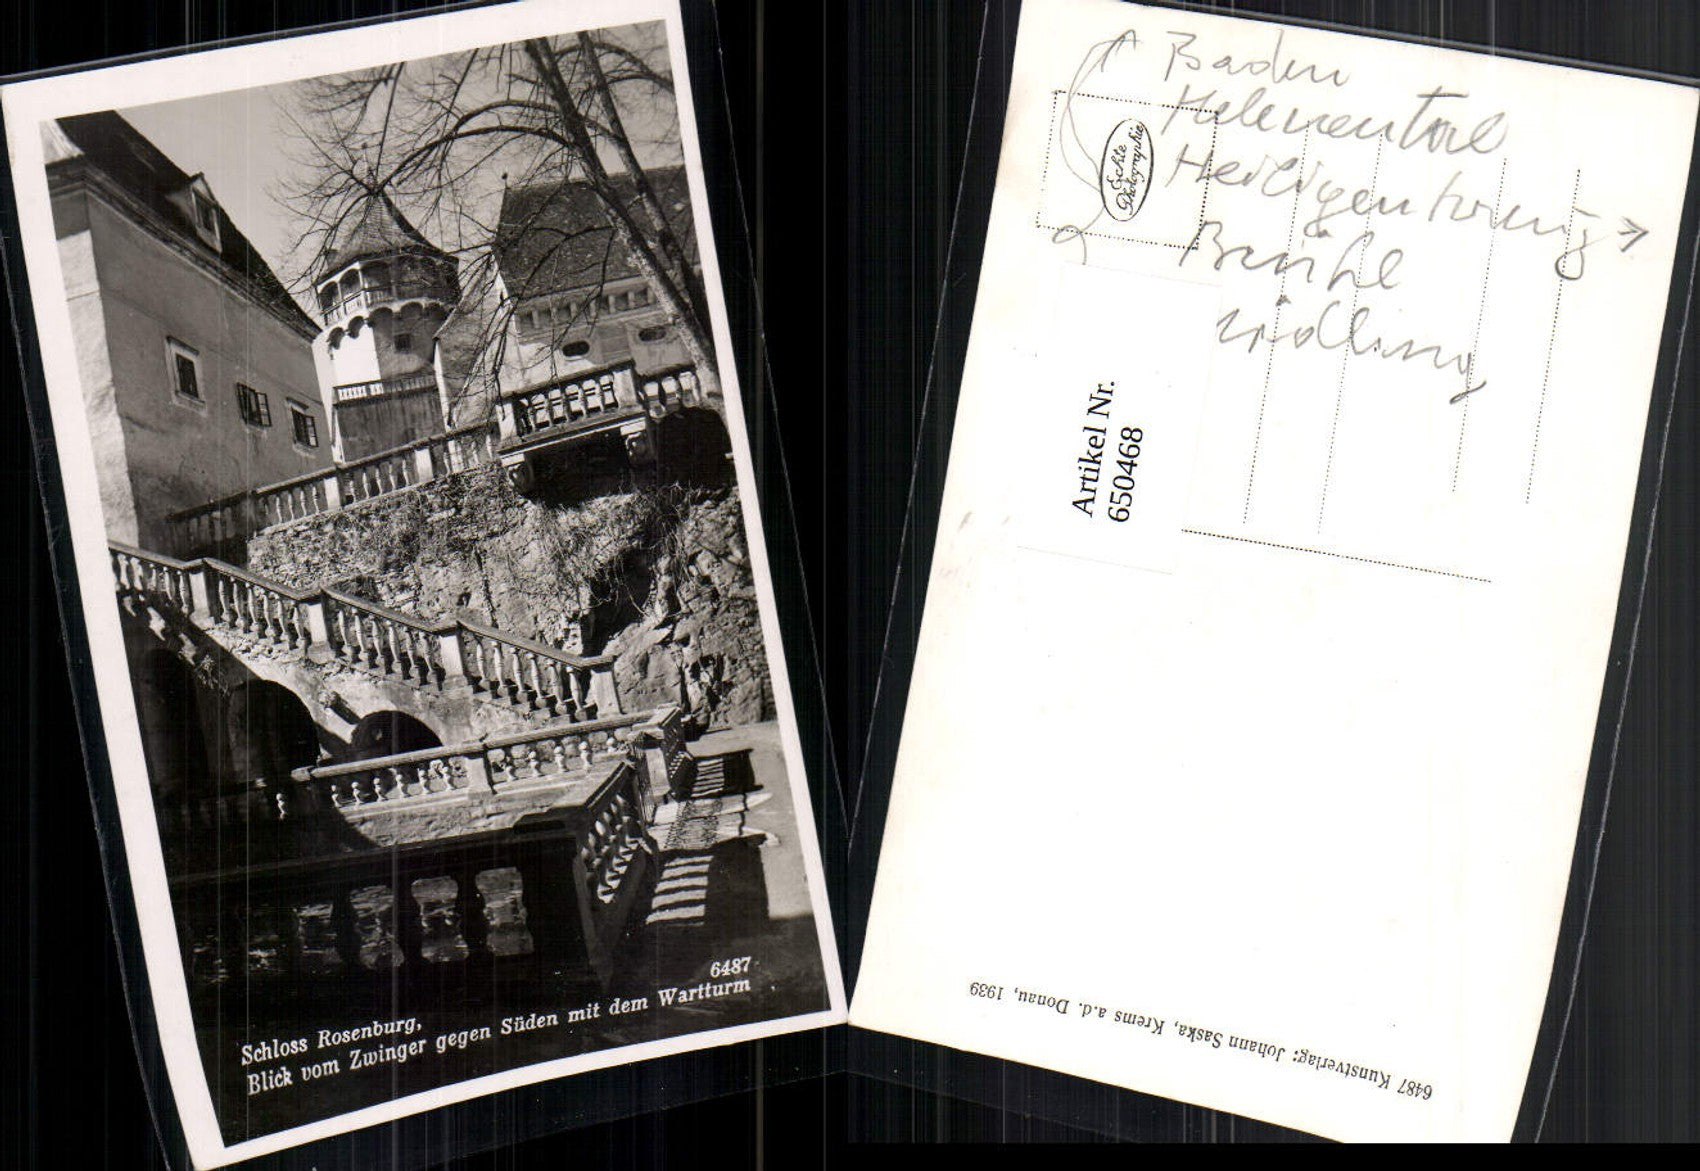 6487
Schloss Rosenburg,
Blick vom Zwinger gegen Süden mit dem Wartturm
Baden
Helenental
Heiligenkreuz →
Brühl
Mödling
Echte
Photographie
Artikel Nr.
650468
6487 Kunstverlag: Johann Saska, Krems a.d. Donau, 1939